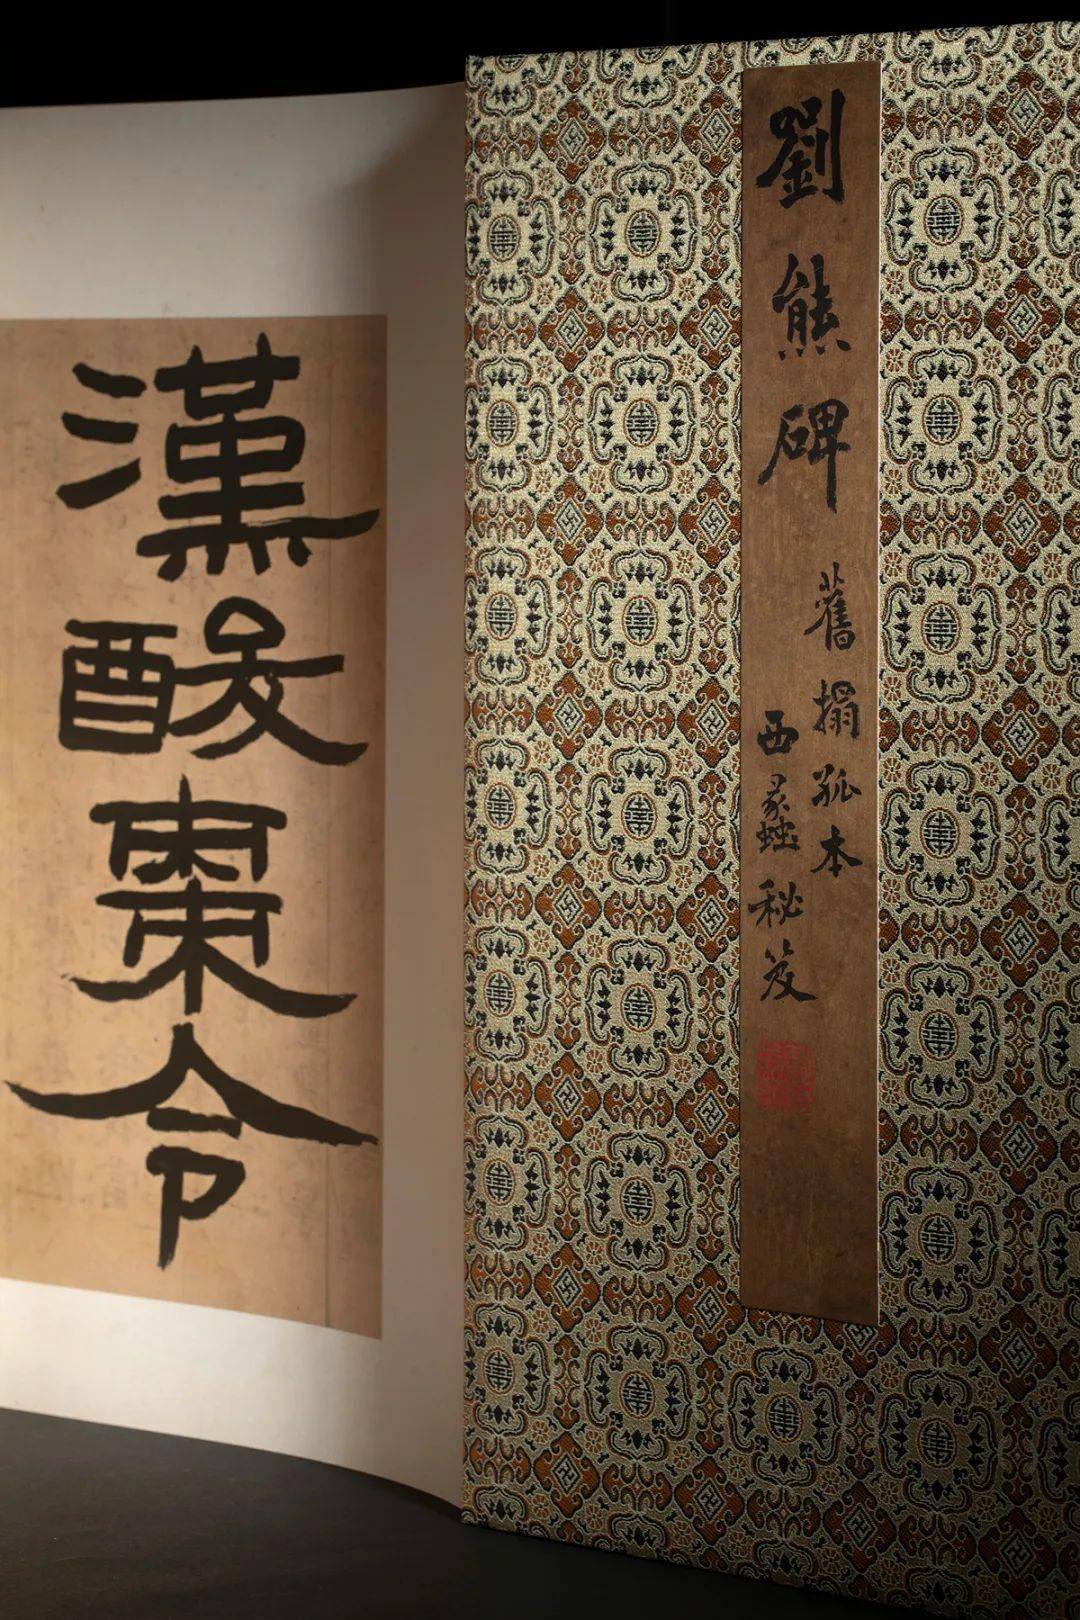 劉熊碑
舊搨孤本
西蠡秘笈
漢酸棗令